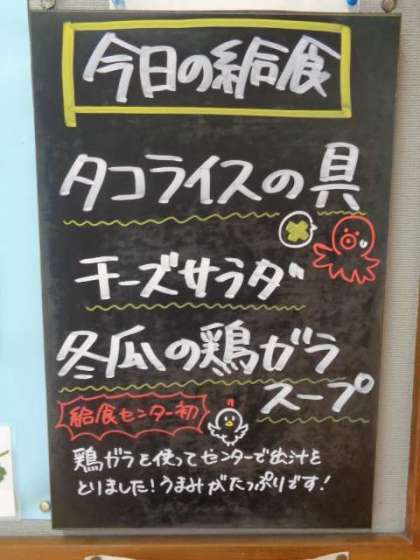 今日の給食
タコライスの具
チーズサラダ
冬瓜の鶏ガラ
スープ
給食センター初
鶏ガラを使ってセンターで出汁を
とりました!うまみがたっぷりです!